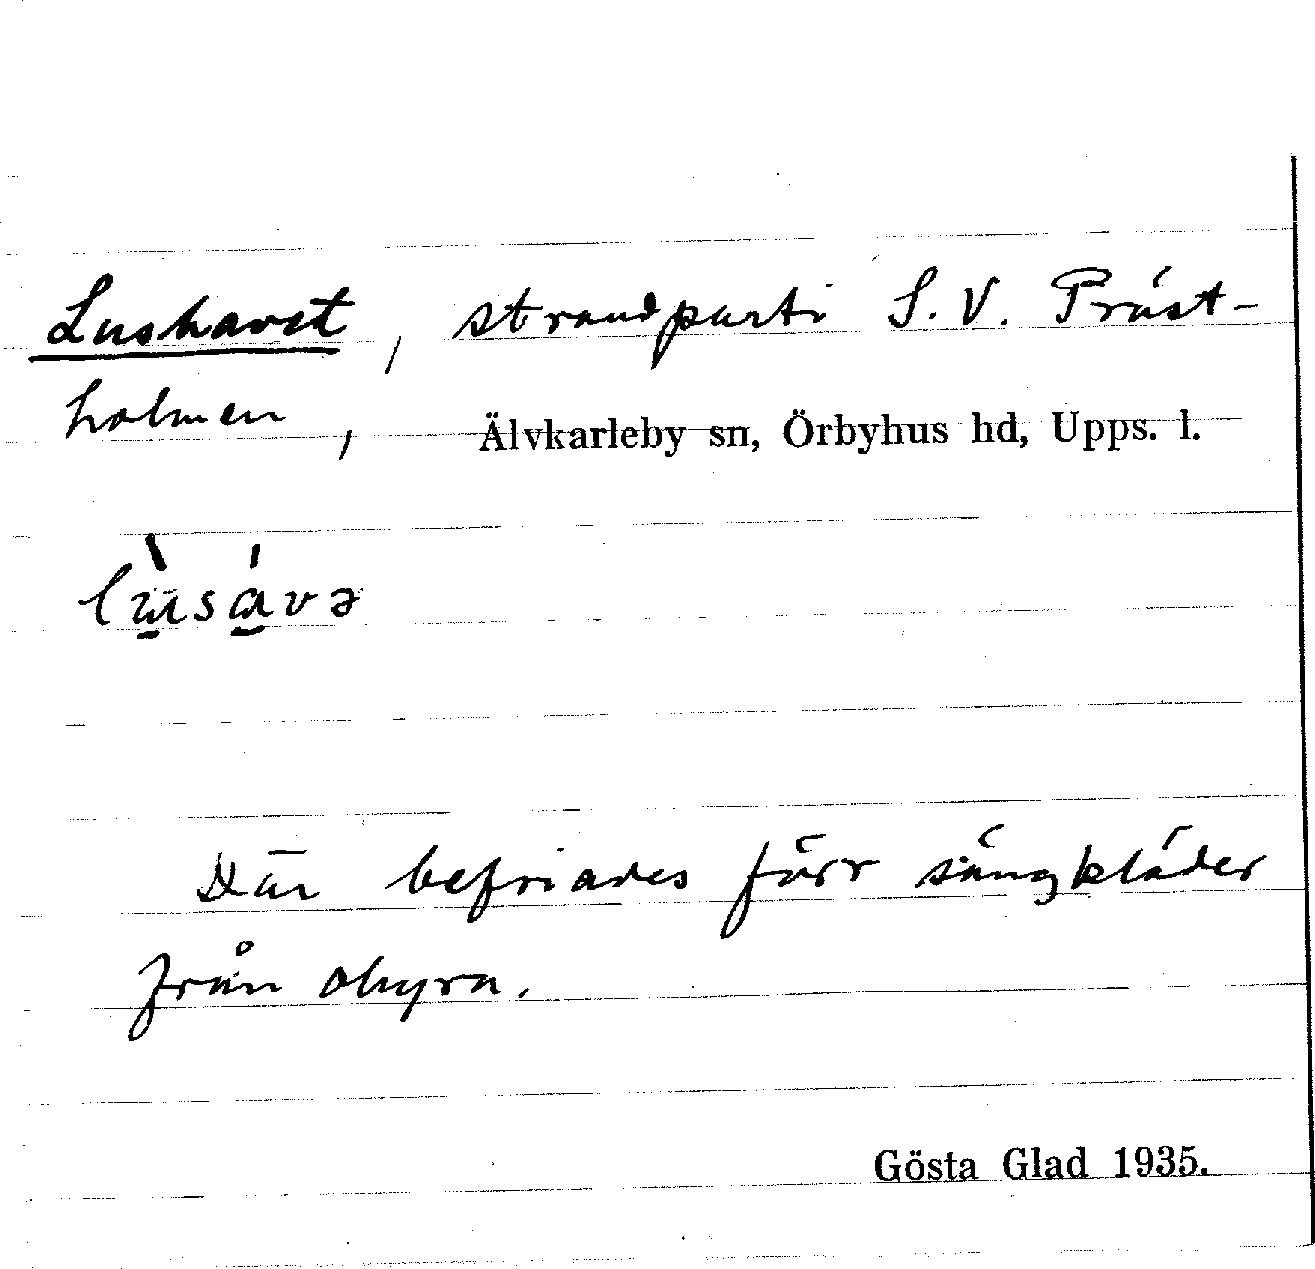 Lushavet, strandparti S.V. Präst-
holmen, Älvkarleby sn, Örbyhus hd, Upps. l.
lù̱sá̱və
Där befriades förr sängkläder
från ohyra.
Gösta Glad 1935.